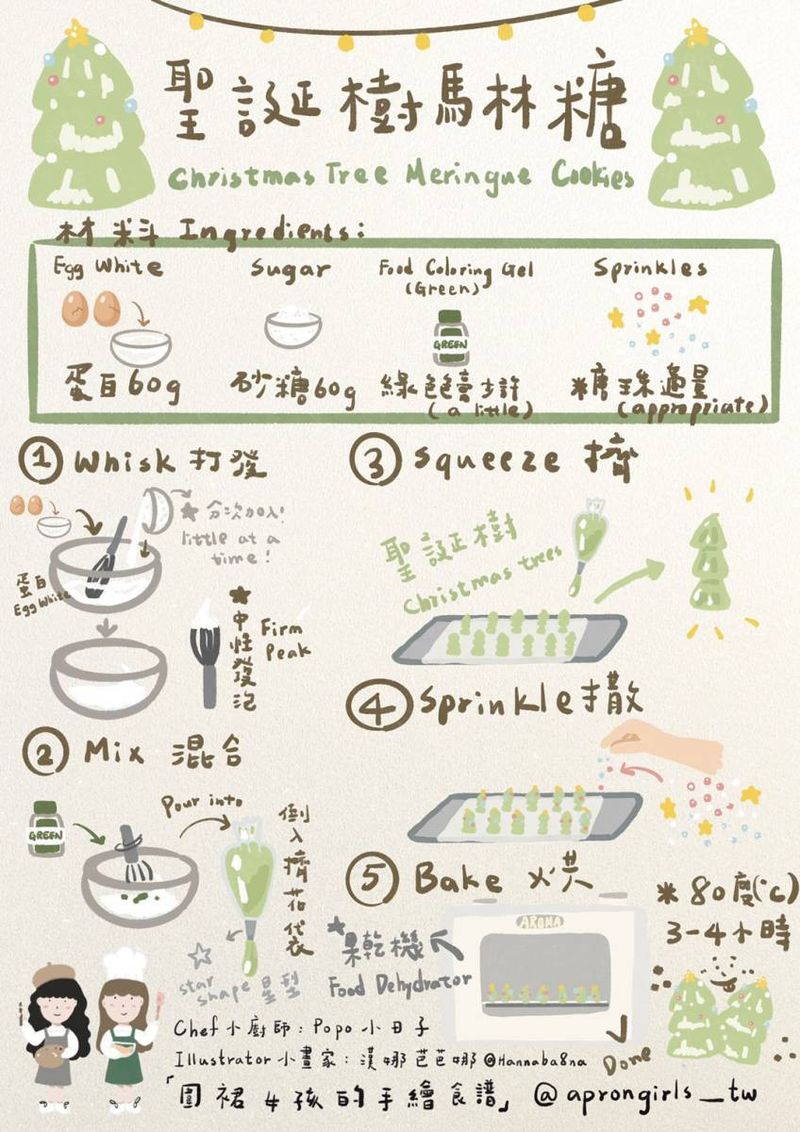 聖誕樹馬林糖
Christmas Tree Meringue Cookies
材料 Ingredients:
Egg White
Sugar
Food Coloring Gel
(Green)
Sprinkles
GREEN
蛋白60g
砂糖60g
綠色色膏少許
(a little)
糖珠適量
(appropriate)
① Whisk 打發
★分次加入!
little at a
time!
蛋白
Egg White
★中性發泡
Firm
Peak
② Mix 混合
GREEN
Pour into
倒入擠花袋
star
shape 星型
③ squeeze 擠
聖誕樹
Christmas trees
④ Sprinkle 撒
⑤ Bake 烘
※ 80度(°C)
3-4小時
AROMA
★果乾機
Food Dehydrator
Done
Chef 小廚師:Popo 小日子
Illustrator 小畫家:漢娜芭芭娜 @Hannaba8na
「圍裙女孩的手繪食譜」 @aprongirls_tw